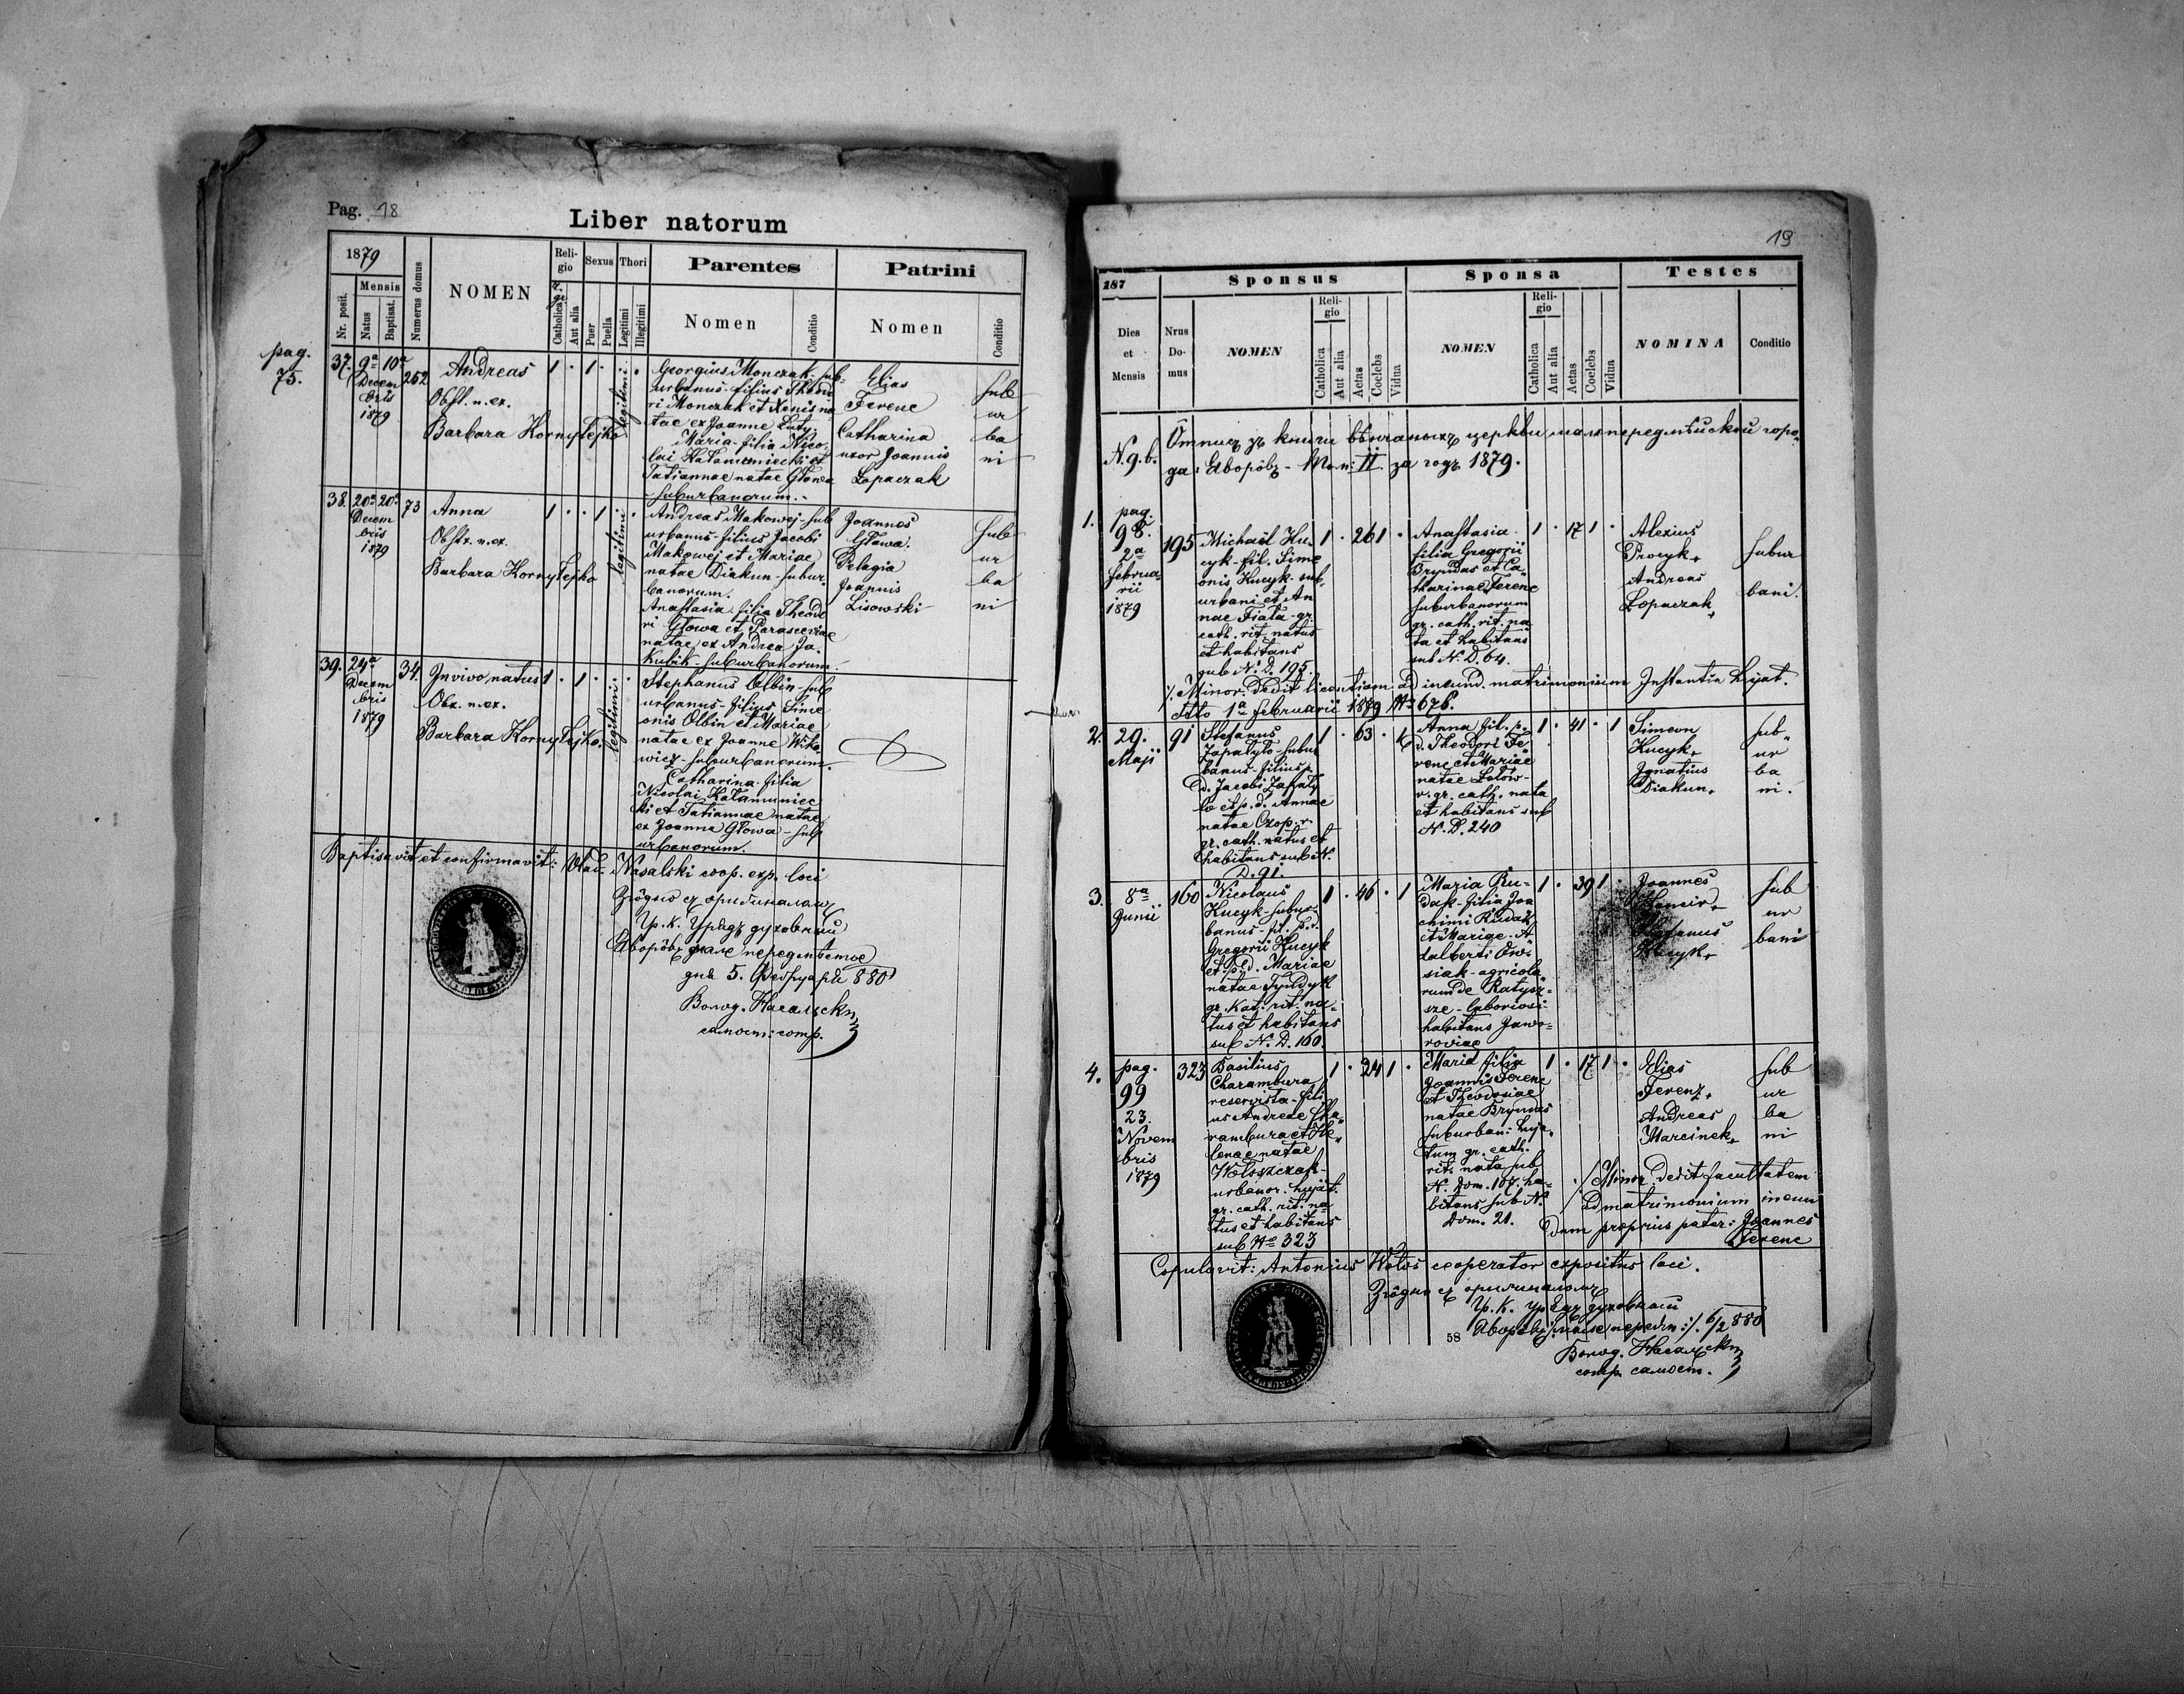 Pag. 18
Liber natorum
1879
Mensis
Nr. posit.
Natus
Baptisat.
Numerus domus
NOMEN
Reli-
gio
Catholica
Aut alia
Sexus
Puer
Puella
Thori
Legitimi
Illegitimi
Parentes
Nomen
Conditio
Patrini
Nomen
Conditio
pag.
75.
37. 9a 10a
Decem
bris
1879
262
Andreas
Obst. n. ex.
Barbara Kornylejko
1 . 1 .
legitimi
Georgius Monczak - sub-
urbanus - filius Theodo
ri Monczak et Xenis na
tae ex Joanne Luty.
Maria - filia Nico
lai Kałamuniecki et
Tatiannae natae Głowa
- suburbanorum. -
Elias
Ferenc
Catharina
uxor Joannis
Łopaczak
sub
ur
ba
ni
38. 20a 20a
Decem
bris
1879
73
Anna
Obstr. n. ex.
Barbara Kornylejko
1 . . 1
legitimi
Andreas Makowej - sub
urbanus - filius Jacobi
Makowej et Mariae
natae Diakun - subur
banorum.
Anastasia filia Theodo
ri Głowa et Parasceviae
natae ex Andrea Ja.
kubik - suburbanorum.
Joannes
Głowa.
Pelagia
Joannis
Lisowski
sub
ur
ba
ni
39. 24a
Decem
bris
1879
34.
In vivo natus
Obs. n. ex.
Barbara Kornylejko.
1 . 1 .
legitimi
Stephanus Olbin - sub
urbanus - filius Sime
onis Olbin et Mariae
natae ex Joanne Wito
wicz - suburbanorum.
Catharina filia
Nicolai Kałamuniec
ki et Tatiannae natae
ex Joanne Głowa - sub
urbanorum.
Baptisavit et confirmavit: Wlad. Nasalski coop. exp. loci
Згôдно съ оригиналомъ
Гр. к. Урядъ духовный
Яворôвъ малe передмѣстье
дня 5. Фебруарія 880
Волод. Насальскій
самост: сотр.
19
187
Dies
et
Mensis
Nrus
Do-
mus
Sponsus
NOMEN
Reli-
gio
Catholica
Aut alia
Aetas
Coelebs
Vidua
Sponsa
NOMEN
Reli-
gio
Catholica
Aut alia
Aetas
Coelebs
Vidua
Testes
NOMINA
Conditio
N. g. b.
Отписъ зъ книги вѣнчаныхъ церкви малопередмѣйской горо-
да: Яворôвъ - Том: II. за годъ 1879.
1.
pag.
98.
2a
februa
rii
1879
195
Michaël Ku.
cyk - fil. Sime
onis Kucyk sub,
urbani et An
nae Fiała - gr.
cath. rit. natus
et habitans
sub N. D. 195.
1 . 26 1 .
Anastasia
filia Gregorii
Bryndas et Ca
tharinae Ferenc
suburbanorum
gr. cath. rit. na
ta et habitans
sub N. D. 64.
1 . 17 1 .
Alexius
Procyk +
Andreas
Łopaczak +
subur
bani.
/. Minor. Dedit licentiam ad ineund. matrimonium Instantia hujat.
ddto 1a februarii 1879 No 676.
2.
29.
Maji
91
Stefanus
Zapatyło - subur
banus - filius p.
d. Jacobi Zapaty
ło et p. d. Annae
natae Czop. r.
gr. cath. natus et
habitans sub N.
D. 91.
1 . 63 . 1
Anna fil. p.
d. Theodori Fe
renc et Mariae
natae Łotow -
r. gr. cath. nata
et habitans sub
N. D. 240
1 . 41 . 1
Simeon
Kucyk +
Ignatius
Diakun +
sub
ur
ba
ni.
3.
8a
Junii
160
Nicolaus
Kucyk - subur
banus - fil. p. d.
Gregorii Kucyk
et p. d. Mariae
natae Tyndyk
gr. kat. rit. na-
tus et habitans
sub N. D. 160
1 . 46 . 1
Maria Ru-
dak - filia Joa
chimi Rudak
et Mariae A
dalberti Ow
siak - agricola
rum de Ratysz-
cze - laboriosi
habitans Jawo-
roviae
1 . 39 1 .
Joannes
Stefanus
Kucyk +
sub
ur
bani
4.
pag.
99
23.
Novem
bris
1879
323
Basilius
Charambura
reservista - fili
us Andreae Cha
rambura et He
lenae natae
Wołoszczak -
urbanor. hujat.
gr. cath. rit. na
tus et habitans
sub No 323
1 . 24 1 .
Maria filia
Joannis Ferenc
et Theodosiae
natae Bryndas
suburbani huja
tum gr. cath.
rit. nata sub
N. Dom. 107. ha-
bitans sub No
Dom. 21.
1 . 17 1 .
Elias
Ferenz +
Andreas
Marcinek +
sub
ur
ba
ni
./ Minor. Dedit facultatem
ad matrimonium ineun
dum proprius pater: Joannes
Ferenc
Copulavit: Antonius Wołos cooperator expositus loci.
Згôдно съ оригиналомъ
Гр. к. Урядъ духовный
58
Яворôвъ /: малe передм :/. 6/2 880
Волод. Насальскій
сотр. самост.